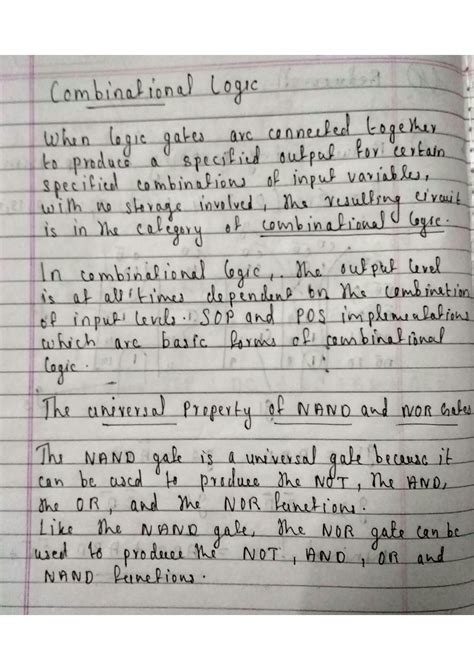 Combinational Logic
When logic gates are connected together
to produce a specified output for certain
specified combinations of input variables,
with no storage involved, the resulting circuit
is in the category of combinational logic.
In combinational logic, the output level
is at all times dependent on the combination
of input levels. SOP and POS implementations
which are basic forms of combinational
logic.
The universal Property of NAND and NOR Gates
The NAND gate is a universal gate because it
can be used to produce the NOT, the AND,
the OR, and the NOR functions.
Like the NAND gate, the NOR gate can be
used to produce the NOT, AND, OR and
NAND functions.